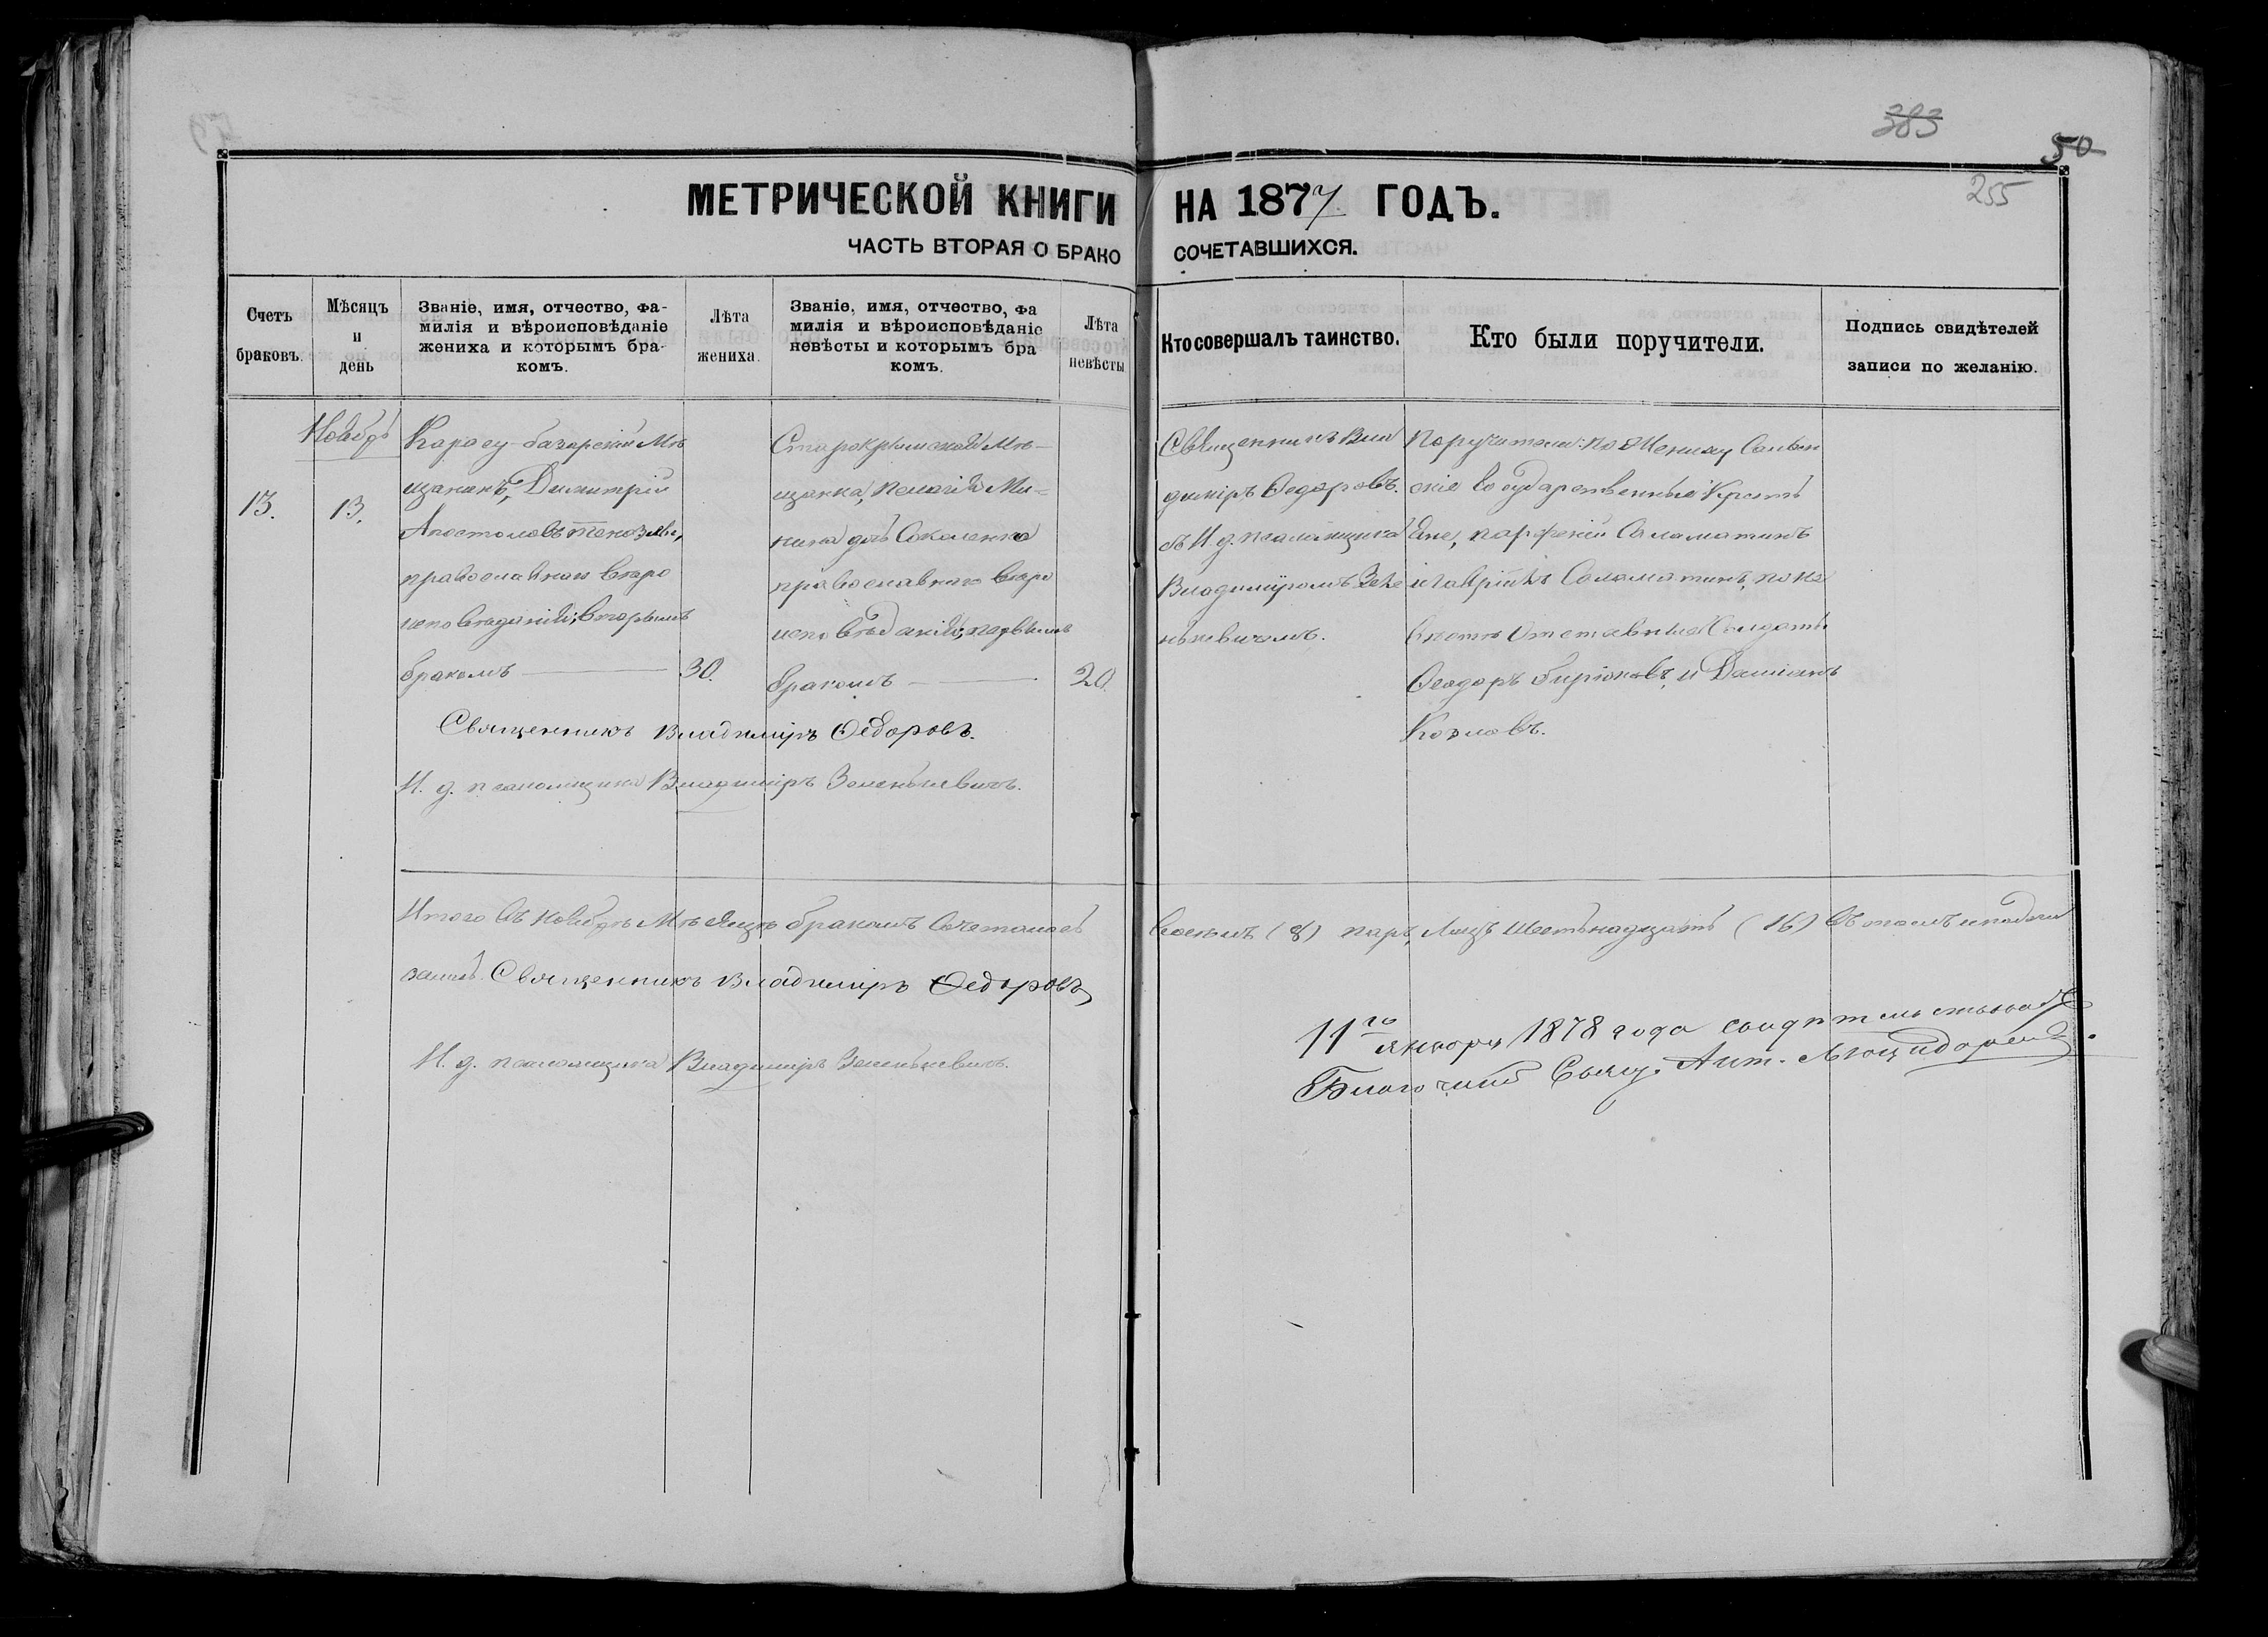 383
50
255
МЕТРИЧЕСКОЙ КНИГИ НА 1877 ГОДЪ.
ЧАСТЬ ВТОРАЯ О БРАКОСОЧЕТАВШИХСЯ.
Счетъ браковъ.
Мѣсяцъ и день
Званіе, имя, отчество, фа-
милія и вѣроисповѣданіе
жениха и которымъ бра-
комъ.
Лѣта жениха.
Званіе, имя, отчество, фа
милія и вѣроисповѣданіе
невѣсты и которымъ бра
комъ.
Лѣта невѣсты
Кто совершалъ таинство.
Кто были поручители.
Подпись свидѣтелей
записи по желанію.
13.
Ноябрь
13.
Карасу-базарскій Мѣ
щанинъ, Димитрій
Апостоловъ
православнаго вѣро
исповѣданія, вторымъ
бракомъ
30.
Старокрымская Мѣ-
щанка, Пелагія Ми-
православнаго вѣро
исповѣданія, первымъ
бракомъ
20.
Священникъ Вла
диміръ Ѳедоровъ.
съ И. д. псаломщика
Владиміромъ Зеле
нькевичемъ.
Поручители: по Жениху
Государственные Кресть
яне, Парфеній Саламатинъ
и Саламатинъ, по не
вѣстѣ Отставные Солдаты
Ѳеодоръ Бирюковъ и Даміанъ
Козловъ.
Священникъ Владиміръ Ѳедоровъ.
И. д. псаломщика Владиміръ Зеленькевичъ.
Итого въ Ноябрѣ Мѣсяцѣ бракомъ Сочеталось Восемь (8) паръ, Лицъ Шестьнадцать (16) Въ томъ и подпи
семъ Священникъ Владиміръ Ѳедоровъ
И. д. псаломщика Владиміръ Зеленькевичъ.
11го января 1878 года свидѣтельствовалъ
Благочинный Свящ. Ант.